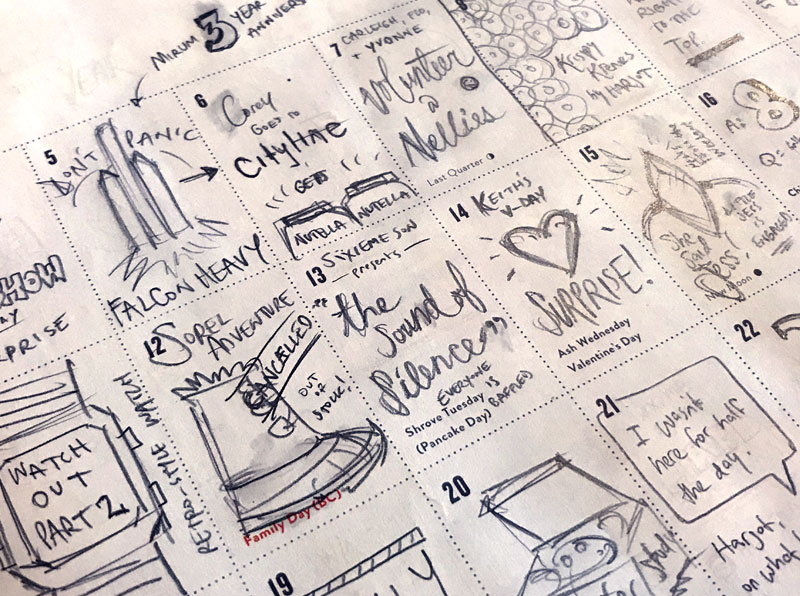 MIRUM 3 YEAR
5
DON'T PANIC
FALCON HEAVY
6
Corey
GOES TO
CITYLINE
GETS
NUTELLA NUTELLA
7
CARLEIGH, FLO,
+ YVONNE
Volunteer
@
Nellies
Last Quarter
8
KRISPY
KREMES
by HARJOT
TO THE
TOP.
SHOW
PRISE
12
SOREL
ADVENTURE
CANCELLED
OUT
OF
STOCK!
Family Day (BC)
13
SIXIEME SON
presents
"the
Sound of
Silence"
EVERYONE
IS
BAFFLED
Shrove Tuesday
(Pancake Day)
14
KEITH'S
V-DAY
SURPRISE!
Ash Wednesday
Valentine's Day
15
She
Said
Yes!
JEFF
IS
ENGAGED!
New Moon
16
A:
Q:
WATCH
OUT
PART 2
RETRO-STYLE WATCH
19
20
21
I wasn't
here for half
the day.
Harjot,
on what
22